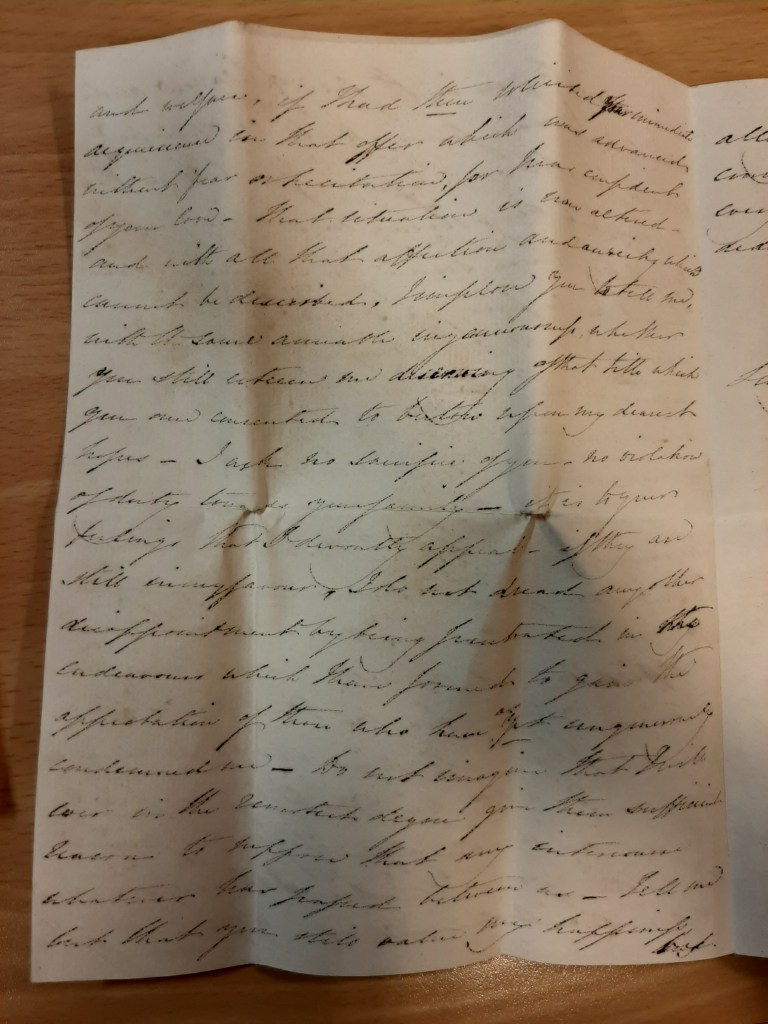 and welfare, if I had then solicited your immediate
acquiescence in that offer which was advanced
without fear or hesitation, for I was confident
of your love - that situation is now altered -
and with all that affection and anxiety which
cannot be described, I implore you to tell me,
with the same amiable ingenuousness, whether
you still esteem me deserving of that title which
you once consented to bestow upon my dearest
hopes - I ask no sacrifice of you - no violation
of duty towards your family - it is to your
feelings that I devoutly appeal - if they are
still in my favour, I do not dread any other
disappointment by being frustrated in the
endeavours which I have formed to gain the
approbation of those who have as yet ungenerously
condemned me - Do not imagine that I will
ever in the remotest degree give them sufficient
reason to suppose that any intercourse
whatever has passed between us - Tell me
but that you still value my happiness
all
even
did